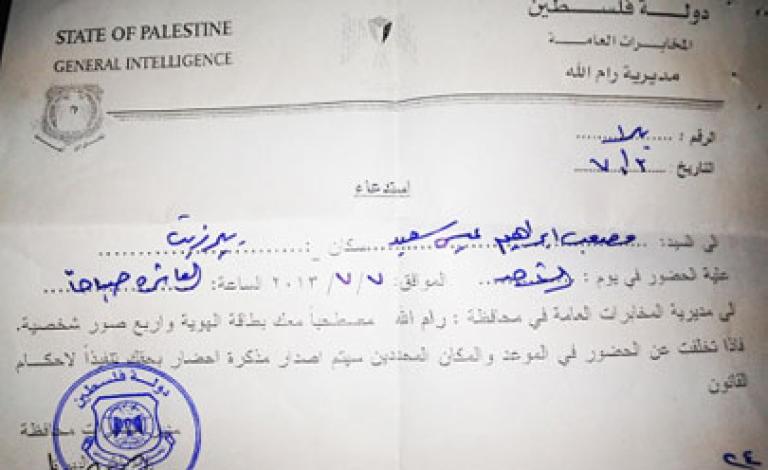 STATE OF PALESTINE
GENERAL INTELLIGENCE
دولة فلسطين
المخابرات العامة
مديرية رام الله
الرقم :
التاريخ ٧/٢
استدعاء
الى السيد: مصعب ابراهيم سعيد سكان : بيرزيت
علية الحضور في يوم : الموافق: ٧ / ٧ / ٢٠١٣ الساعة: العاشرة صباحا
لي مديرية المخابرات العامة في محافظة : رام الله مصطحباً معك بطاقة الهوية واربع صور شخصية.
فاذا تخلفت عن الحضور في الموعد والمكان المحددين سيتم اصدار مذكرة احضار بحقك تنفيذاً لاحكام
القانون
دولة فلسطين
محافظة
٢٤